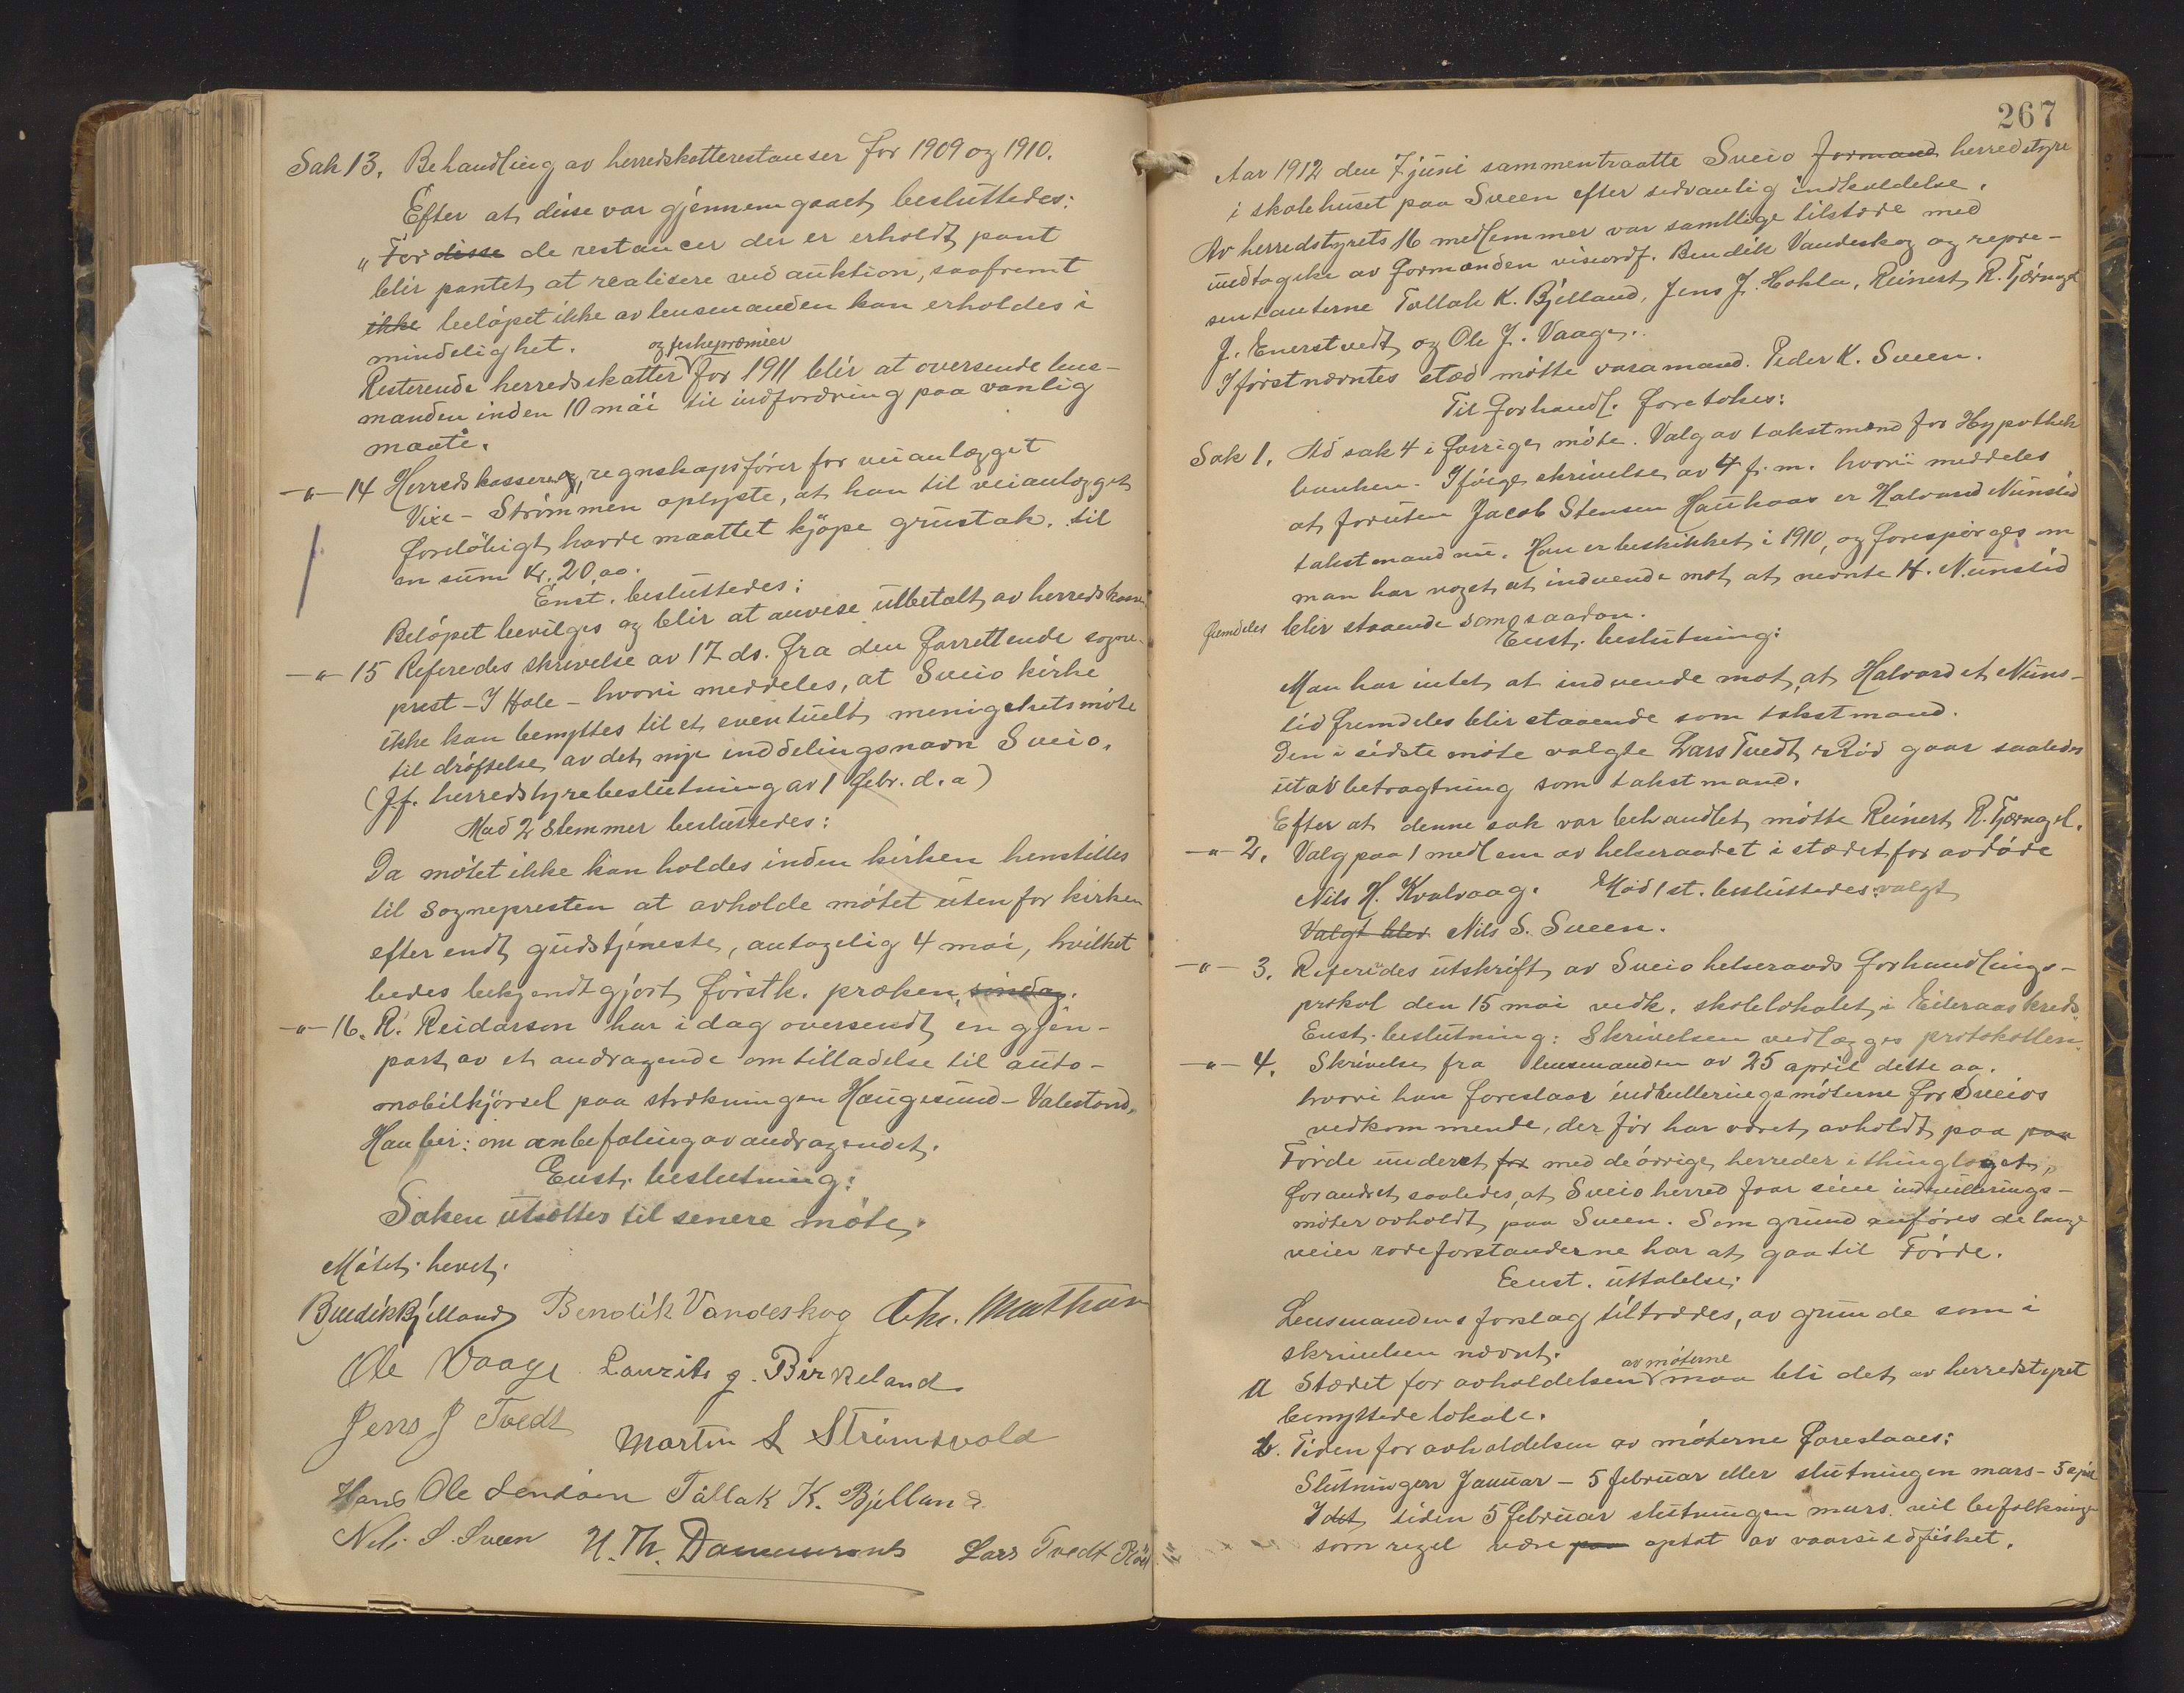 Sak 13. Behandling av herredskatterestanser for 1909 og 1910.
Efter at disse var gjennemgaaet besluttedes:
"For disse de restancer der er erholdt pant
blir pantet at realisere ved auktion, saafremt
ikke beløpet ikke av lensmanden kan erholdes i
mindelighet.
og feskepræmier
Resterende herredsskatter for 1911 blir at oversende lens-
manden inden 10 mai til indfordring paa vanlig
maate.
-"- 14 Herredskasserer og regnskapsfører for veianlægget
Vixe - Strømmen oplyste, at han til veianlægget
foreløbigt havde maattet kjøpe grustak til
en sum Kr. 20,00.
Enst. besluttedes:
Beløpet bevilges og blir at anvise utbetalt av herredskassen
-"- 15 Referedes skrivelse av 17 ds. fra den forrettende sogne-
prest - I Hole - hvori meddeles, at Sveio kirke
ikke kan benyttes til et eventuelt menigehetsmøte
til drøftelse av det nye inddelingsnavn Sveio.
(Jf. herredstyrebeslutning av 1 febr. d. a)
Mod 2 stemmer besluttedes:
Da møtet ikke kan holdes inden kirken henstilles
til sognepresten at avholde møtet utenfor kirken
efter endt gudstjeneste, antagelig 4 mai, hvilket
bedes bekjendtgjort førstk. præken søndag.
-"- 16. R. Reidarson har idag oversendt en gjen-
part av et andragende om tilladelse til auto-
mobilkjørsel paa strækningen Haugesund - Valestrand.
Han ber: om anbefaling av andragendet.
Enst. beslutning:
Saken utsættes til senere møte.
Møtet hevet.
Bendik Bjelland Bendik Vandeskog Chr. Mathun
Ole Vaage Laurits J. Birkeland
Jens J Tvedt Martin L Strømsvold
Hans Ole Lendøen Tallak K. Bjelland
Nels S. Sveen N. Th. Dommersnes Lars Tvedt Röd
267
Aar 1912 den 7 juni sammentraatte Sveio formand herredstyre
i skolehuset paa Sveen efter sedvanlig indkaldelse.
Av herredstyrets 16 medlemmer var samtlige tilstæde med
undtagelse av formanden viseordf. Bendik Vandeskog og repre-
sentanterne Tallak K. Bjelland, Jens J. Hokla, Reinert R. Tjernagel
J. Enerstvedt og Ole J. Vaage.
I førstnævntes stæd møtte varamand Peder K. Sveen.
Til forhandl. foretokes:
Sak 1. Ad sak 4 i forrige møte. Valg av takstmænd for Hypothek
banken. Ifølge skrivelse av 4 f. m. hvori meddeles
at foruten Jacob Stensen Haukaas er Halvard Nunslid
takstmand nu. Han er beskikket i 1910, og forespørges om
man har noget at indvende mot, at nevnte H. Nunslid
fremdeles blir staaende som saadan.
Enst. beslutning:
Man har intet at indvende mot, at Halvard et Nuns-
lid fremdeles blir staaende som takstmand.
Den i sidste møte valgte Lars Tvedt Rød gaar saaledes
utav betragtning som takstmand.
Efter at denne sak var behandlet møtte Reinert R. Tjernagel.
-"- 2. Valg paa 1 medlem av helseraadet i stædet for avdøde
Nils H. Kvalvaag. Mod 1 st. besluttedes valgt
Valgt blev Nils S. Sveen.
-"- 3. Referedes utskrift av Sveio helseraads forhandlings-
prokol den 15 mai vedk. skolelokalet i Eileraas kreds.
Enst. beslutning: Skrivelsen vedlægges protokollen.
-"- 4. Skrivelse fra lensmanden av 25 april dette aa.
hvori han foreslaar indrulleringsmøterne for Sveios
vedkommende, der før har været avholdt paa paa
Førde underet for med de øvrige herreder i thinglaget,
forandret saaledes, at Sveio herred faar sine indrullerings-
møter avholdt paa Sveen. Som grund anføres de lange
veier rodeforstanderne har at gaa til Førde.
Eenst. uttalelse:
Lensmandens forslag tiltrædes, av grunde som i
skrivelsen nævnt.
av møterne
a Stædet for avholdelsen maa bli det av herredstyret
benyttede lokale.
b. Tiden for avholdelsen av møterne foreslaaes:
Slutningen Januar - 5 februar eller slutningen mars - 5 april
I det tiden 5 februar slutningen mars vil befolkningen
som regel være paa optat av vaarsildfisket.